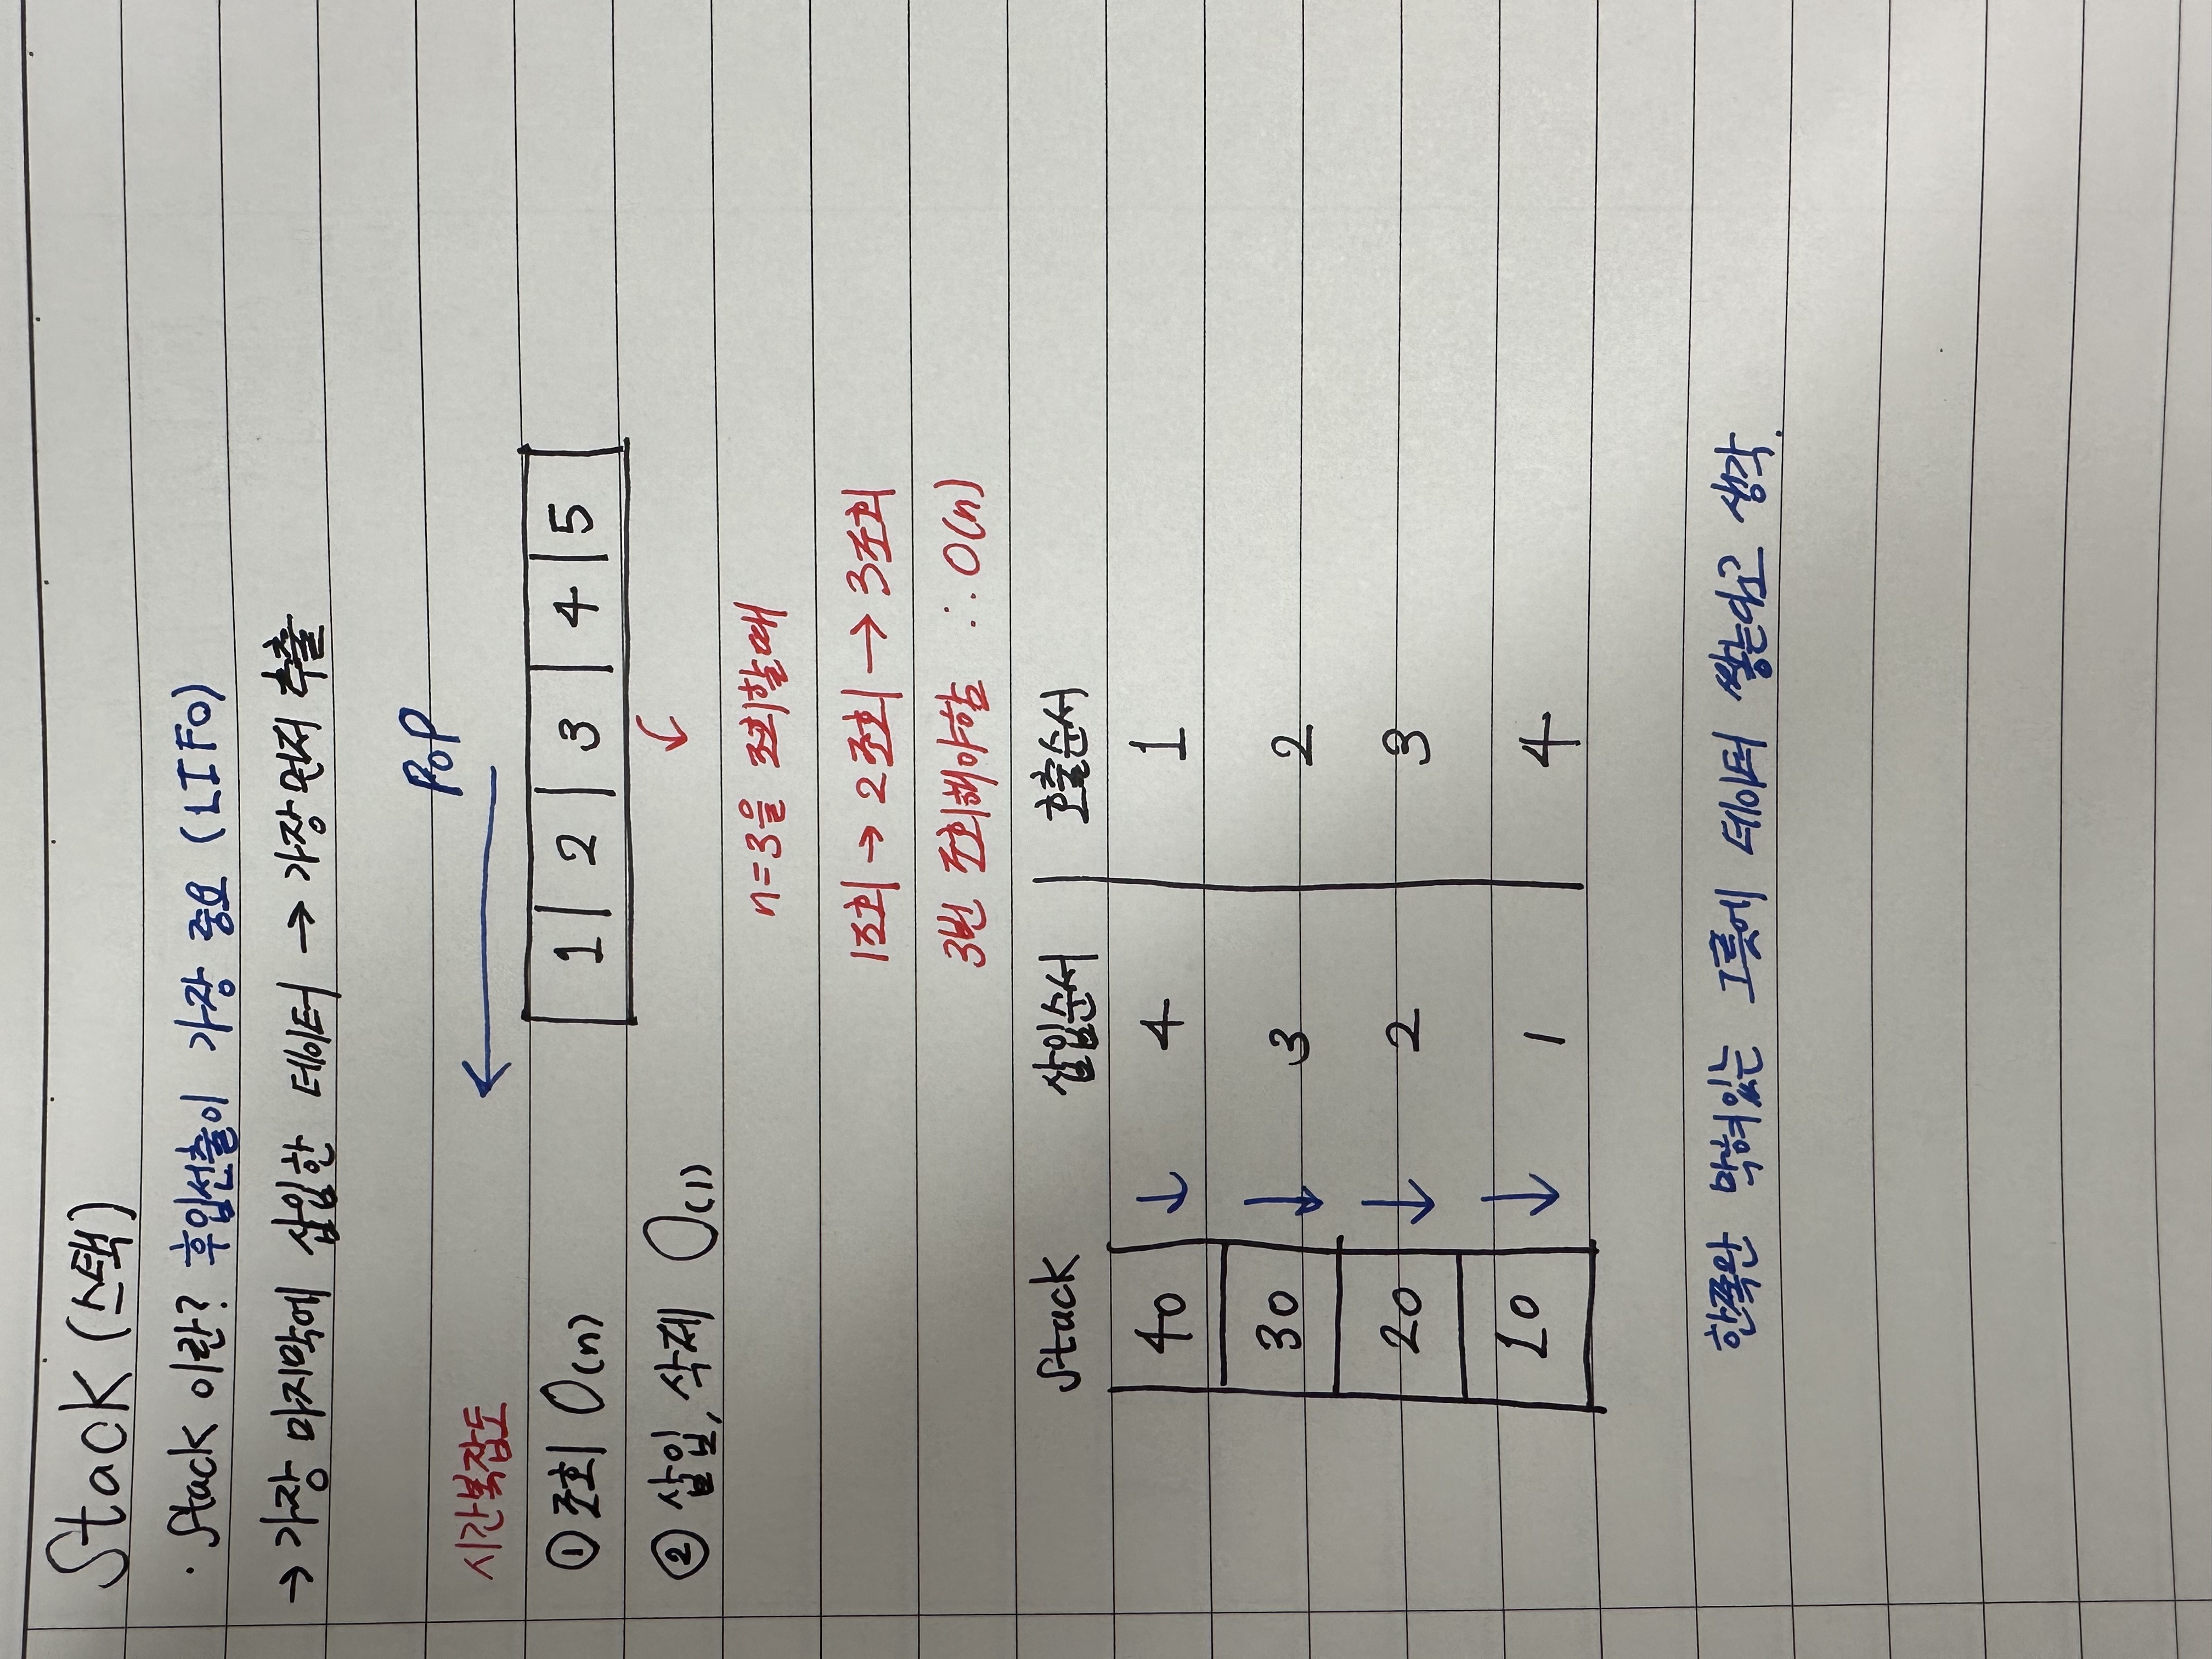 Stack (스택)
· Stack 이란? 후입선출이 가장 중요 (LIFO)
→ 가장 마지막에 삽입한 데이터 → 가장 먼저 추출
POP
시간복잡도
① 조회 O(n)
1 2 3 4 5
② 삽입, 삭제 O(1)
n=3을 조회할때
1조회 → 2조회 → 3조회
3번 조회해야함 ∴ O(n)
Stack 삽입순서 호출순서
40 ↓ 4 1
30 ↓ 3 2
20 ↓ 2 3
10 ↓ 1 4
한쪽만 막혀있는 그릇에 데이터 쌓는다고 생각.